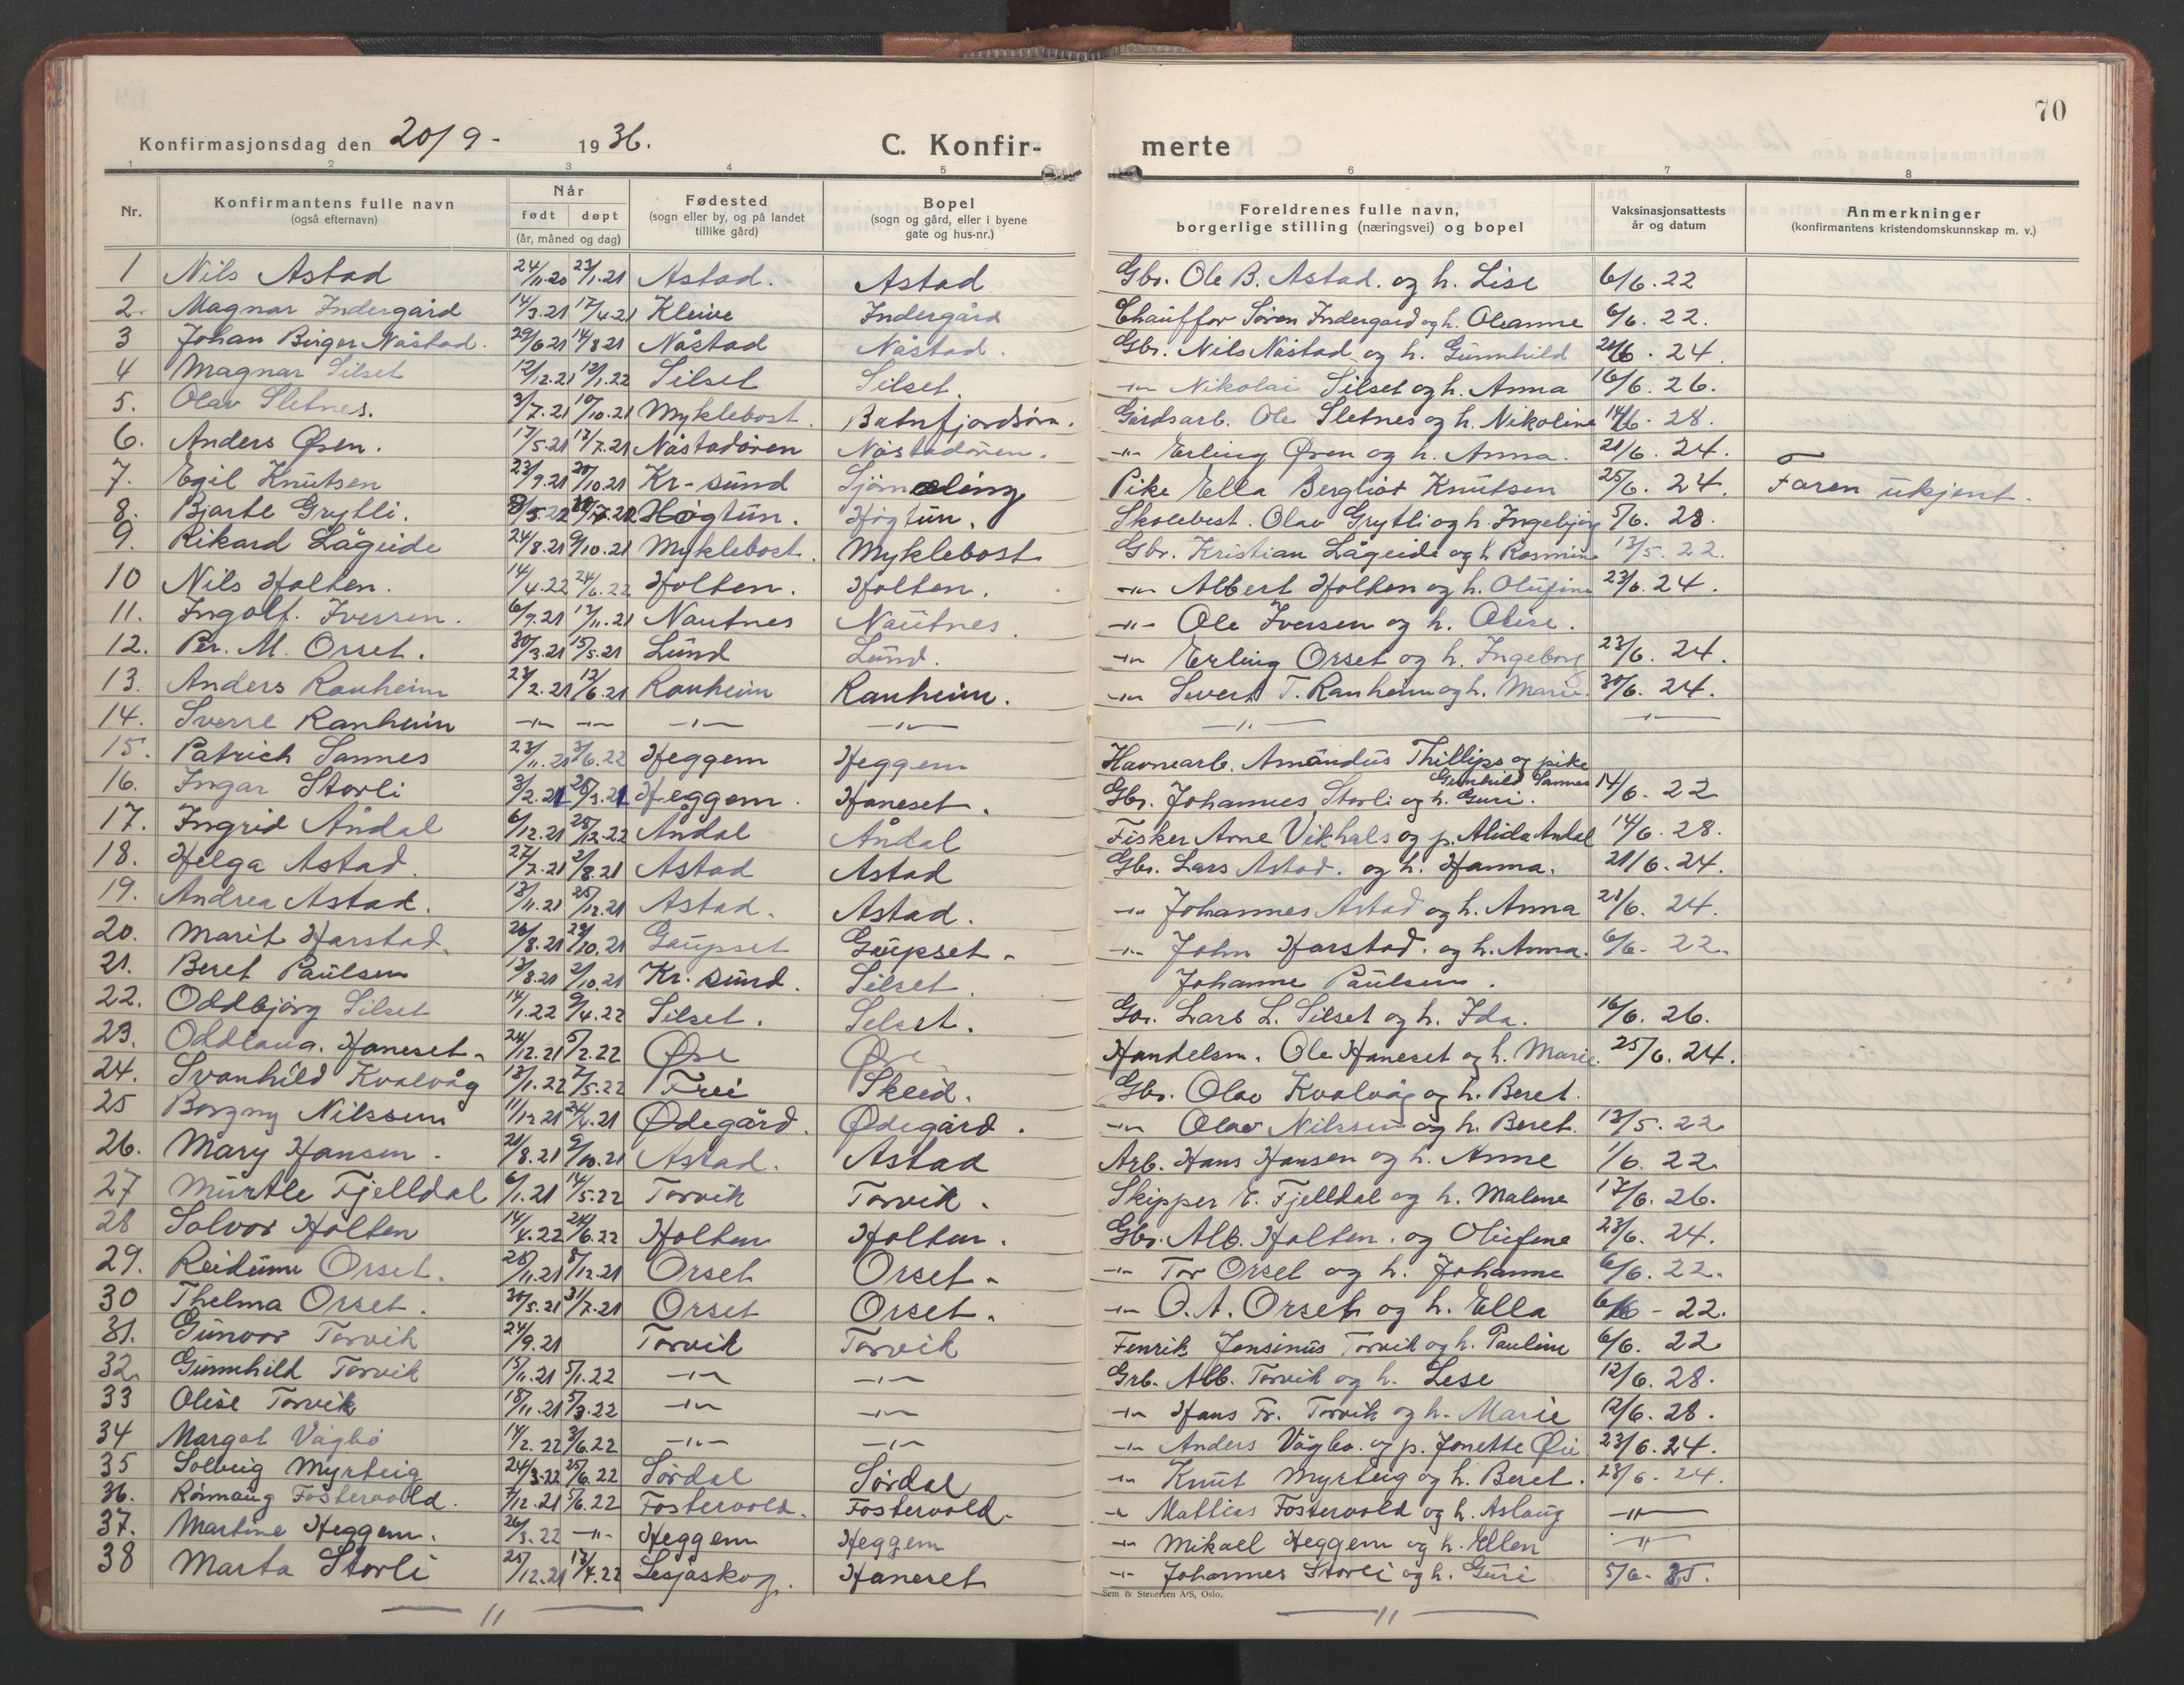 70
Konfirmasjonsdag den 20/9 - 1936. C. Konfir- merte
1 2 3 4 5 6 7 8
Nr. Konfirmantens fulle navn (også efternavn) Når født døpt (år, måned og dag) Fødested (sogn eller by, og på landet tillike gård) Bopel (sogn og gård, eller i byene gate og hus-nr.) Foreldrenes fulle navn, borgerlige stilling (næringsvei) og bopel Vaksinasjonsattests år og datum Anmerkninger (konfirmantens kristendomskunnskap m. v.)
1 Nils Astad 24/11.20 23/1.21 Astad. Astad Gbr. Ole B. Astad. og h. Lise 6/6.22
2. Magnar Indergård 14/3.21 17/4.21 Kleive Indergård Chauffør Søren Indergaard og h. Oleanne 6/6. 22.
3 Johan Birger Nåstad. 29/6.21 14/8.21 Nåstad Nåstad. Gbr. Nils Nåstad og h. Gunnhild 21/6. 24.
4 Magnar Silset 12/12.21 12/1.22 Silset Silset. -"- Nikolai Silset og h. Anna 16/6. 26.
5. Olav Sletnes. 3/7.21 10/10.21 Myklebost. Batnfjordsøra. Gårdsarb. Ole Sletnes og h. Nikoline 14/6. 28.
6. Anders Øren. 17/5.21 17/7.21 Nåstadøren Nåstadøren. -"- Erling Øren og h. Anna. 21/6. 24.
7. Egil Knutsen 23/9.21 20/10.21 Kr-sund Pike Ella Bergliot Knutsen 25/6. 24. Faren ukjent.
8. Bjarte Grytli. Høgtun. Høgtun. Skolebest. Olav Grytli og h. Ingebjørg 5/6. 28.
9. Rikard Lågeide 24/8.21 9/10.21 Myklebost. Myklebost Gbr. Kristian Lågeide og h. Rasmine 13/5. 22.
10 Nils Holten. 14/4.22 24/6.22 Holten. Holten. -"- Albert Holten og h. Olufine 23/6. 24.
11. Ingolf. Iversen. 6/9.21 17/11.21 Nautnes Nautnes. -"- Ole Iversen og h. Olise.
12. Per. M. Orset. 30/3.21 15/5.21 Lund Lund. -"- Erling Orset og h. Ingeborg 23/6. 24.
13. Anders Ranheim 12/6.21 Ranheim Ranheim. -"- Sivert T. Ranheim og h. Marie. 30/6. 24.
14. Sverre Ranheim -"- -"- -"- -"- -"- -"-
15. Patrich Sannes 23/11.21 3/6.22 Heggem Heggem Havnearb. Amandus Thillips og pike Gunhild Sannes
16. Ingar Storli 3/2.21 28/3.21 Heggem. Haneset. Gbr. Johannes Storli og h. Guri. 14/6. 22
17. Ingrid Åndal 6/12.21 28/12.22 Åndal Åndal Fisker Arne Vikhals og p. Alida Åndal 14/6. 28.
18. Helga Astad. 27/7.21 21/8.21 Astad Astad Gbr. Lars Astad. og h. Hanna. 21/6. 24.
19. Andrea Astad. 13/11.21 25/12.21 Astad. Astad. -"- Johannes Astad og h. Anna 21/6. 24.
20. Marit Harstad. 26/8.21 23/10.21 Gaupset Gaupset. -"- John Harstad. og h. Anna. 6/6. 22.
21. Beret Paulsen 13/8.21 2/10.21 Kr. sund. Silset. Johanne Paulsen.
22. Oddbjørg Silset 14/1.22 9/4.22 Silset. Silset. Gbr. Lars L. Silset og h. Ida. 16/6. 26.
23. Oddlaug. Haneset. 24/12.21 5/2.22 Øre Øre Handelsm. Ole Haneset og h. Marie. 25/6. 24.
24. Svanhild Kvalvåg 13/1.22 7/5.22 Frei Skeid. Gbr. Olav Kvalvåg og h. Beret.
25 Borgny Nilssen 11/12.21 24/4.21 Ødegård. Ødegård. -"- Olav Nilssen og h. Beret. 13/5. 22
26. Mary Hansen. 21/8.21 9/10.21 Astad. Astad Arb. Hans Hansen og h. Anne 1/6. 22.
27 Murtle Fjelldal 6/1.21 14/5.22 Torvik Torvik. Skipper E. Fjelldal og h. Malene 17/6. 26.
28 Solvor Holten 14/4.22 24/6.22 Holten Holten. Gbr. Alb. Holten. og Olufine 23/6. 24.
29. Reidunn Orset. 28/11.21 8/12.21 Orset Orset. -"- Tor Orset og h. Johanne 6/6. 22.
30 Thelma Orset. 30/5.21 31/7.21 Orset Orset. -"- O. A. Orset og h. Ella 6/6 - 22.
31. Gunvor Torvik 24/9.21 Torvik Torvik Fenrik Jensinus Torvik og h. Pauline 6/6. 22
32. Gunnhild Torvik 15/11.21 5/1.22 -"- -"- Grb. Alb. Torvik og h. Lese 12/6. 28.
33 Olise Torvik 18/11.21 5/3.22 -"- -"- -"- Hans Fr. Torvik og h. Marie 12/6. 28.
34 Margot Vågbø 14/2.22 3/6.22 -"- -"- -"- Anders Vågbø. og p. Jonette Øie 23/6. 24.
35 Solveig Myrteig 24/3.22 25/6.22 Sørdal Sørdal -"- Knut Myrteig og h. Beret. 23/6. 24.
36. Rønnaug Fostervold. 7/12.21 5/6.22 Fostervold. Fostervold. -"- Mattias Fostervold og h. Aslaug -"-
37. Martine Heggem. 26/3.22 -"- Heggem Heggem -"- Mikael Heggem og h. Ellen -"-
38 Marta Storli 25/12.21 17/4.22 Lesjaskog. Haneset -"- Johannes Storli og h. Guri 5/6. 35.
Sem & Stenersen A/S, Oslo.
-"- -"-